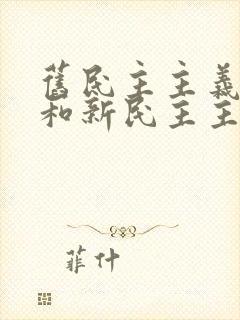 舊民主主義
和新民主主
菲什